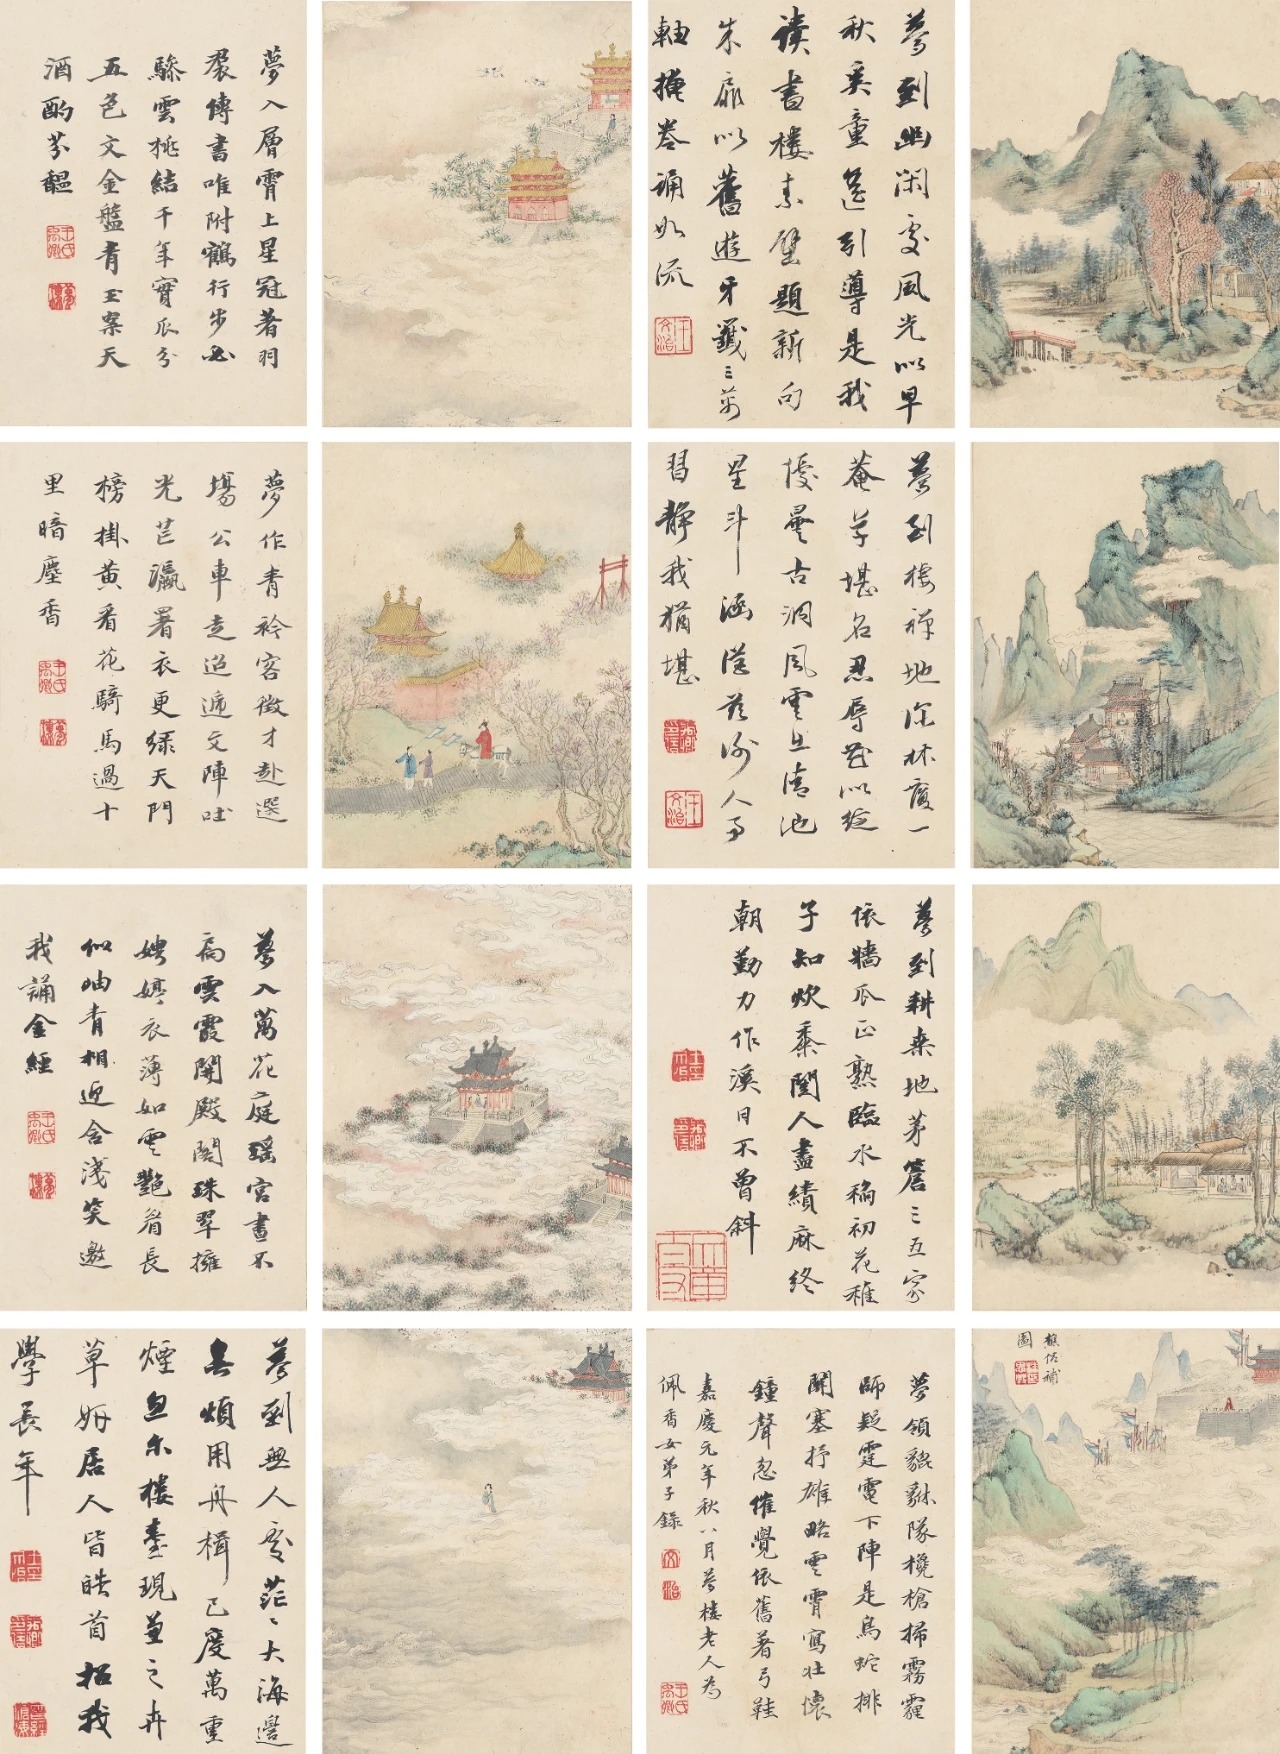 夢到幽閑處風光似早
秋奚童遙引導是我
讀書樓素壁題新句
朱扉似舊遊牙籤三萬
軸掩卷誦如流
王文治
夢入層霄上星冠著羽
裙傳書唯附鶴行步必
驂雲桃結千年實瓜分
五色文金盤青玉案天
酒酌芬馧
王氏禹卿
夢樓
夢到棲禪地深林處一
菴草堪名忍辱花以綻
優曇古洞風雲上清池
星斗涵從茲謝人事
習靜我猶堪
王文治
夢作青衿客徵才赴選
場公車走迢遞文陣吐
光芒瀛署衣更綠天門
榜掛黃看花騎馬過十
里暗塵香
王氏禹卿
夢樓
夢到耕桑地茅簷三五家
依牆瓜正熟臨水稻初花稚
子知炊黍閨人盡績麻終
朝勤力作溪日不曾斜
夢入萬花庭瑤宮晝不
扃雲霞開殿閣珠翠擁
娉婷衣薄如雲艷眉長
似岫青相迎含淺笑邀
我誦金經
王氏禹卿
夢樓
補
圖
夢領貔貅隊欃槍掃霧霾
師疑霆電下陣是鳥蛇排
關塞抒雄略雲霄寫壯懷
鍾聲忽催覺依舊著弓鞋
嘉慶元年秋八月夢樓老人為
佩香女弟子錄
文治
王氏禹卿
夢到無人處茫茫大海邊
無煩用舟楫已度萬重
煙忽爾樓臺現兼之卉
草妍居人皆皓首招我
學長年